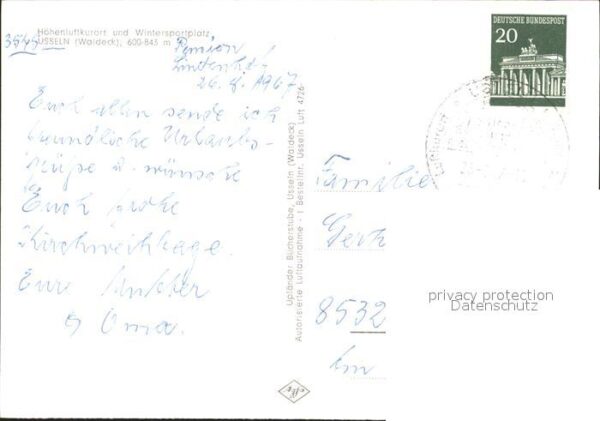 Höhenluftkurort und Wintersportplatz
3545 USSELN (Waldeck), 600-845 m
Pension
Lindenhof
26.8.1967
Euch allen sende ich
freundliche Urlaubs-
grüße u. wünsche
Euch frohe
Kirchweihtage.
Eure Mutter
u Oma.
Upländer Bücherstube, Usseln (Waldeck)
Autorisierte Luftaufnahme - 1 Bestellnr. Usseln Luft 4726
DEUTSCHE BUNDESPOST
20
Familie
Gerh
8532
privacy protection
Datenschutz